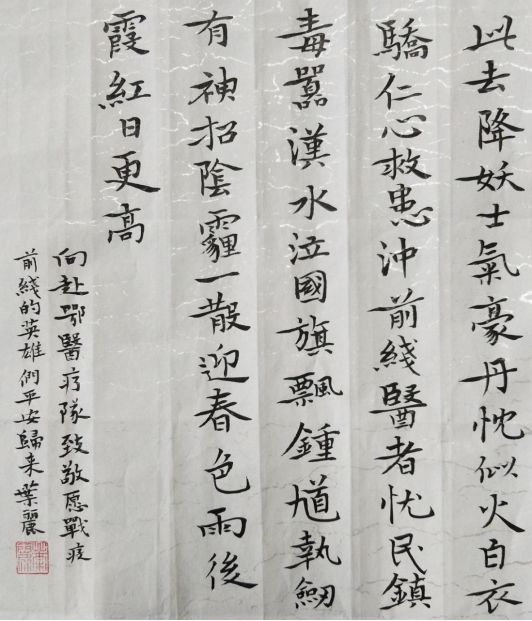 此去降妖士氣豪丹忱似火白衣
驕仁心救患沖前綫醫者忧民鎮
毒嚣漢水泣國旗飄鍾馗執劒
有神招陰霾一散迎春色雨後
霞紅日更高
向赴鄂醫疗隊致敬愿戰疫
前綫的英雄們平安歸来葉麗